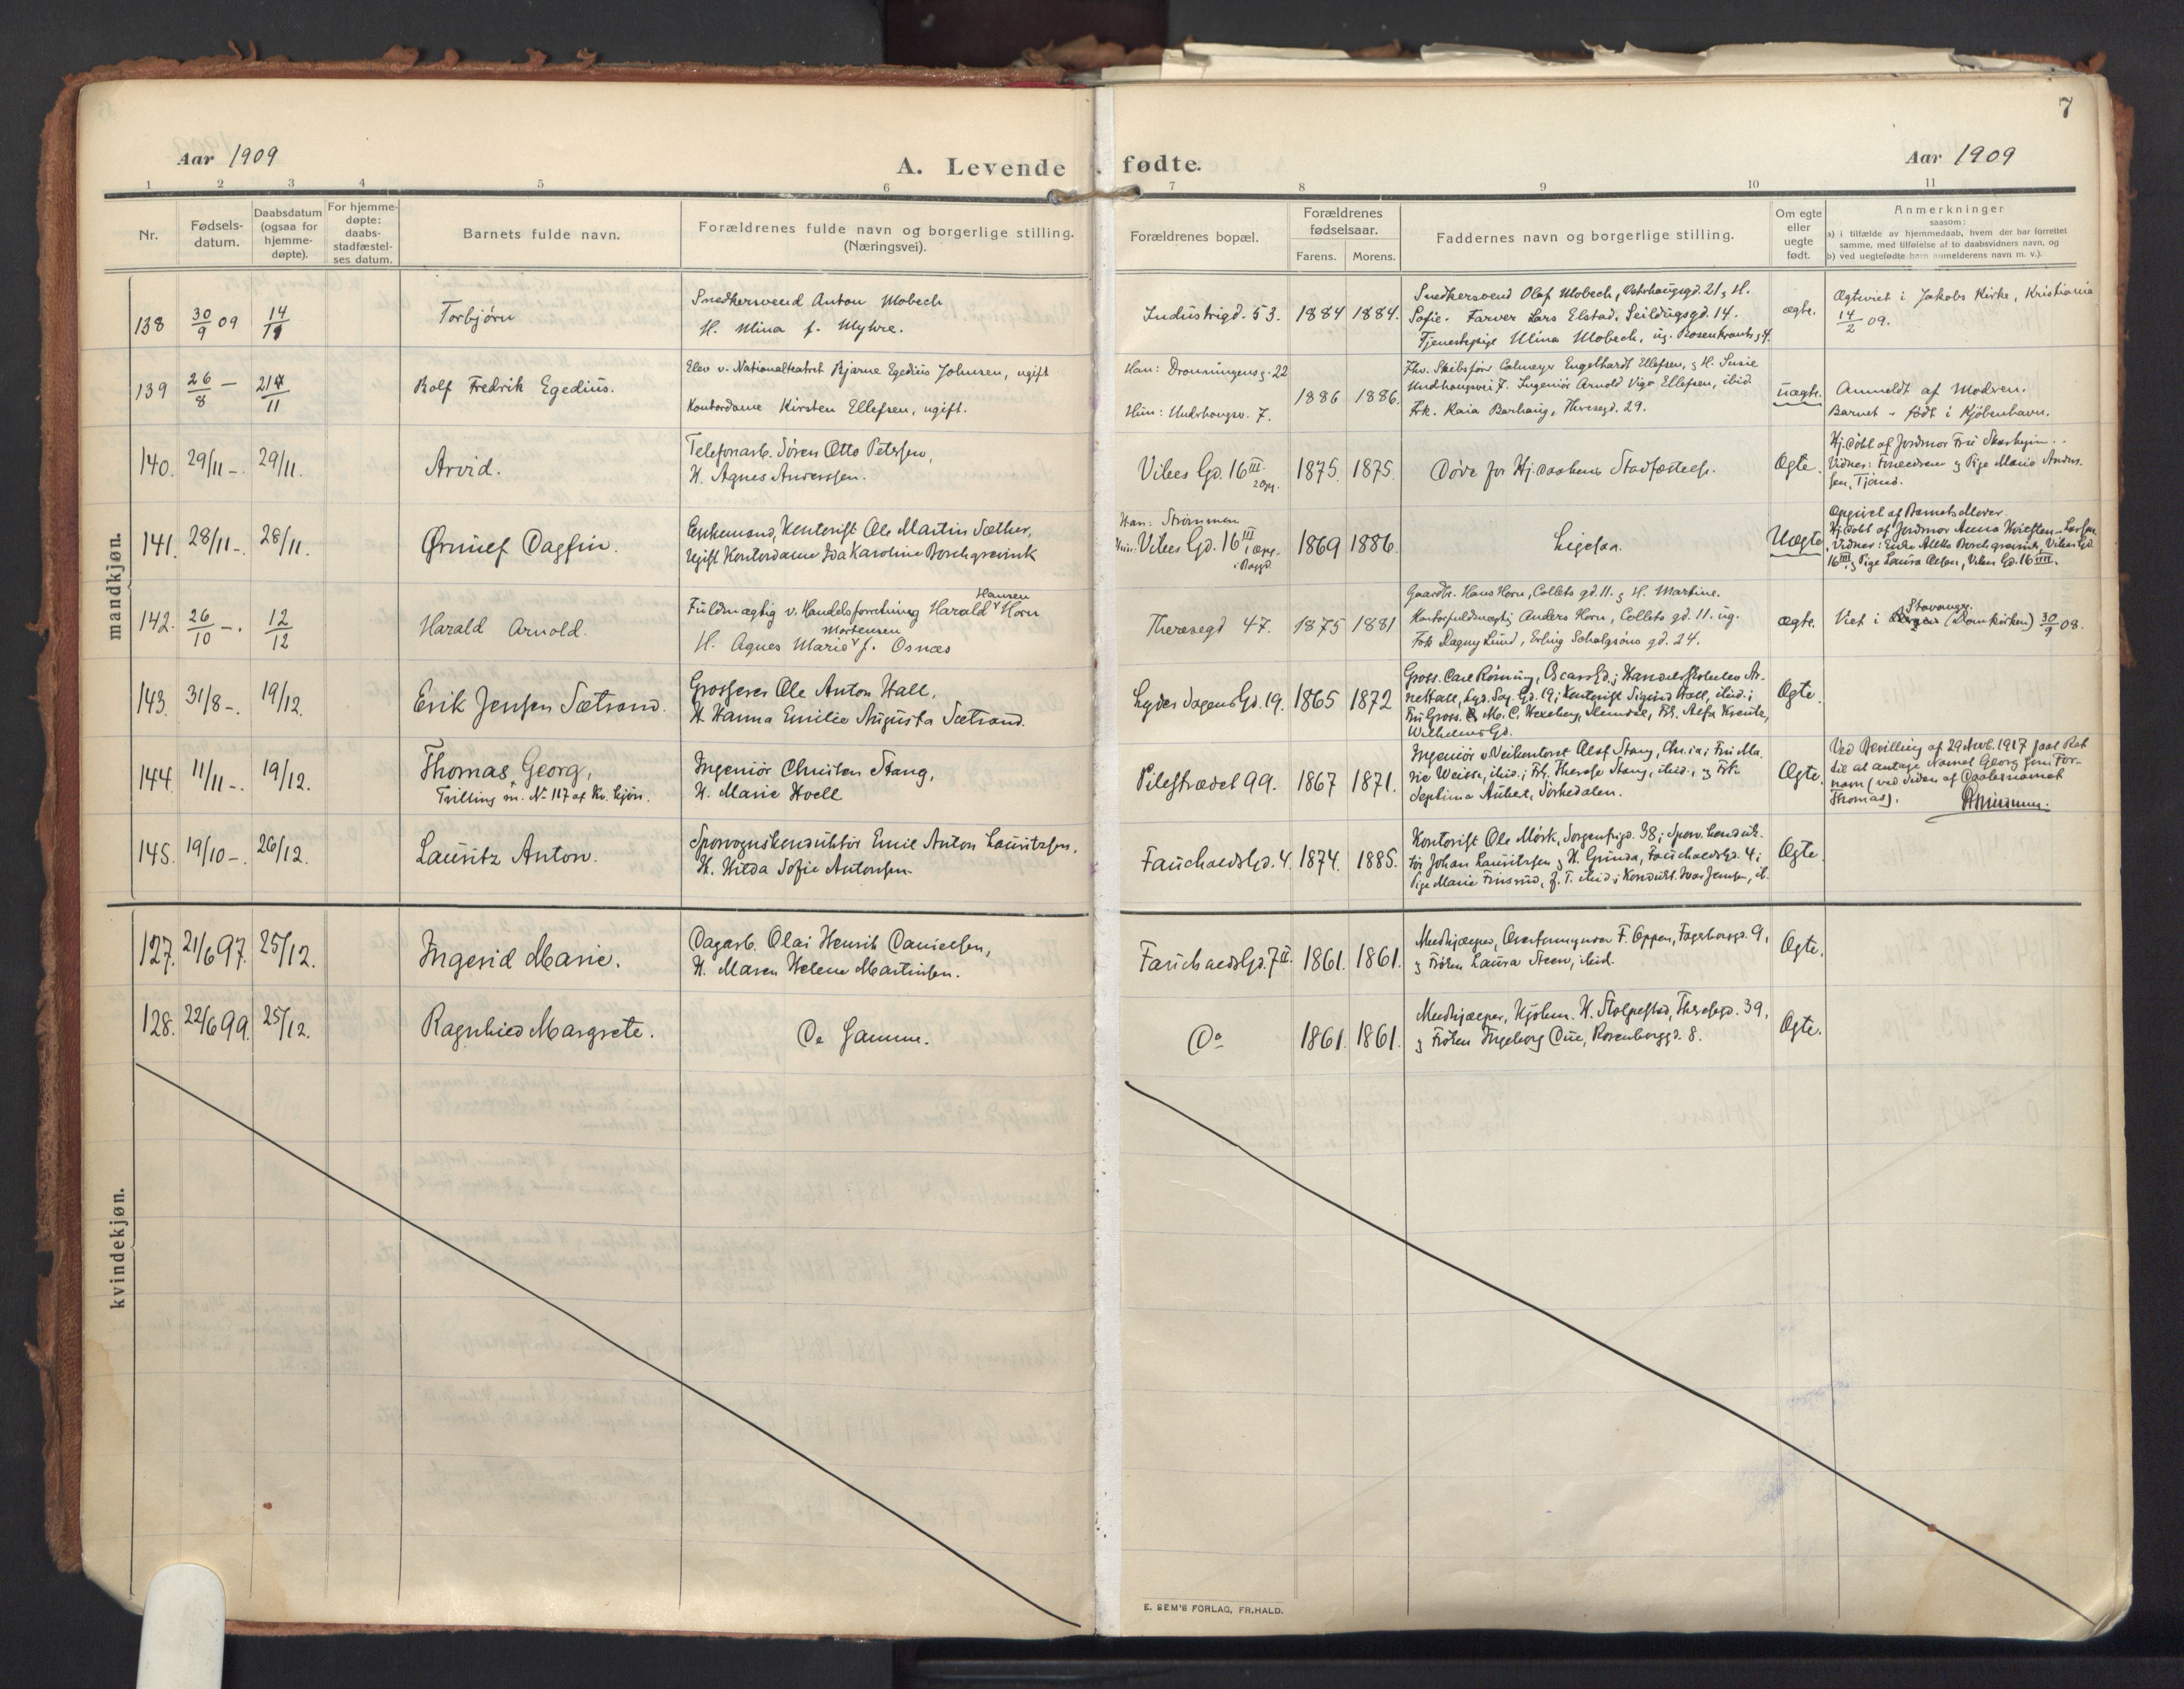 7
Aar 1909
A. Levende fødte.
Aar 1909
1 2 3 4 5 6 7 8 9 10 11
Nr.
Fødsels-
datum.
Daabsdatum
(ogsaa for
hjemme-
døpte).
For hjemme-
døpte:
daabs-
stadfæstel-
ses datum.
Barnets fulde navn.
Forældrenes fulde navn og borgerlige stilling.
(Næringsvei).
Forældrenes bopæl.
Forældrenes
fødselsaar.
Farens. Morens.
Faddernes navn og borgerlige stilling.
Om egte
eller
uegte
født.
Anmerkninger
saasom:
a) i tilfælde av hjemmedaab, hvem der har forrettet
samme, med tilføielse af to daabsvidners navn, og
b) ved uegtefødte barn anmelderens navn m. v.).
mandkjøn.
138 30/9 09 14/11
Torbjørn
Snedkersvend Anton Mobech
H. Mina f. Myhre.
Industrigd. 53. 1884 1884.
Snedkersvend Olaf Mobech, 21, H.
Sofie. Farver Lars Elstad, Seildugsgd. 14.
Tjenestepige Mina Mobech, ug. Rosenkrantzg. 4.
ægte.
Ægteviet i Jakobs Kirke, Kristiania
14/2 09.
139 26/8 — 21/11
Rolf Fredrik Egedius.
Elev v. Nationalteatret Bjarne Egedius Johnsen, ugift
Kontordame Kirsten Ellefsen, ugift.
Han: Dronningensg. 22
Hun: Underhaugsv. 7.
1886 1886.
Fhv. Skibsfører Colmeyer Engelhardt Ellefsen, g H. Susie
Underhaugsvei 7. Ingeniør Arnold Vige Ellefsen, ibid.
Frk. Kaia Barhaug, Theresegd. 29.
uægte.
Anmeldt af Modren.
Barnet født i Kjøbenhavn.
140. 29/11 -. 29/11.
Arvid.
Telefonarb. Søren Otto Petersen,
H. Agnes Anderssen.
Vibes Gd. 16 III.
2 Opg.
1875. 1875.
Døde før Hj.daabens Stadfæstelse.
Ægte.
Hj.døbt af Jordmor Fru
Vidner: Faderen g Pige Marie Anders-
sen, Tjømø.
141. 28/11 -. 28/11.
Ørnulf Dagfin.
Enkemand, Kontorist Ole Martin Sæther,
Ugift Kontordame Ida Karoline Borchgrevink
Han: Strømmen
Hun: Vibes Gd. 16 III
1 Opg.
i Baggd.
1869 1886.
Ligesaa.
Uægte
Opgivet af Barnets Moder.
Hj.døbt af Jordmor Anna Kvelsten-Larsen.
Vidner: Enke Alette Borchgrevink, Vibes Gd.
16 III g Pige Laura Olsen, Vibes Gd. 16 III.
142. 26/10 -. 12/12
Harald Arnold.
Fuldmægtig v. Handelsforretning Harald Hansen Horn
H. Agnes Marie Mortensen f. Osnæs
Theresegd 47. 1875 1881
Gaardbr. Hans Horn, Colletts gd. 11. g H. Martine.
Kontorfuldmægtig Anders Horn, Colletts gd. 11. ug.
Frk Dagny Lund, Erling Skjalgsøns gd. 24.
ægte.
Viet i Stavanger (Domkirken) 30/9 08.
143. 31/8 -. 19/12.
Erik Jensen Sætrand.
Grosserer Ole Anton Hall,
H. Hanna Emilie Augusta Sætrand.
Lyder Sagens Gd. 19. 1865 1872
Gross. Carl Rönning, Oscars Gd.; Handelsskoleelev Ar-
ne Hall, Lyd. Sag. Gd. 19; Kontorist Sigurd Hall, ibid.;
Fru Gross. M. C. Hexeberg, Slemdal, Frk. Alfa Krentz,
Wilhelms Gd.
Ægte.
144. 11/11 -. 19/12.
Thomas Georg,
Tvilling m. No 117 af Kv. kjön.
Ingeniör Christen Stang,
H. Marie Hoell
Pilestrædet 99. 1867 1871.
Ingeniör v. Veikontoret Olaf Stang, Chr.ia; Fru Ma-
rie Weisse, ibid.; Frk. Therese Stang, ibid., g Frk
Septima Aubert, Sörkedalen.
Ægte.
Ved Bevilling af 29 Novb. 1917 faat Ret
til at antage Navnet Georg som For-
navn (ved Siden af Daabsnavnet
Thomas).
145. 19/10 -. 26/12.
Lauritz Anton.
Sporvognskonduktör Emil Anton Lauritzsen,
H. Hilda Sofie Antonsen
Fauchaldsgd. 4. 1874. 1885.
Kontorist Ole Mörk, Sorgenfrigd. 38; Sporv. konduk-
tör Johan Lauritzsen g H. Gunda, Fauchaldsgd. 4;
Pige Marie Finsrud, f. T. ibid; Kondukt. Ivar Jensen, ib.
Ægte.
kvindekjøn.
127. 21/6 97. 25/12.
Ingerid Marie.
Dagarb. Olai Henrik Danielsen,
H. Maren Helene Martinsen.
Fauchaldsgd. 7 II. 1861. 1861.
Medhjælper, F. Oppen, Fagerborggd. 9,
g Fröken Laura Steen, ibid.
Ægte.
128. 22/6 99. 25/12.
Ragnhild Margrete.
De Samme.
Do 1861. 1861.
Medhjælper, Hjelm. H. Stolpestad, Theresegd. 39,
g Fröken Ingeborg Due, Rosenborggd. 8.
Ægte.
E. SEM'S FORLAG, FR.HALD.